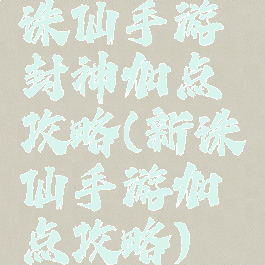 诛仙手游
封神加点
攻略(新诛
仙手游加
点攻略)